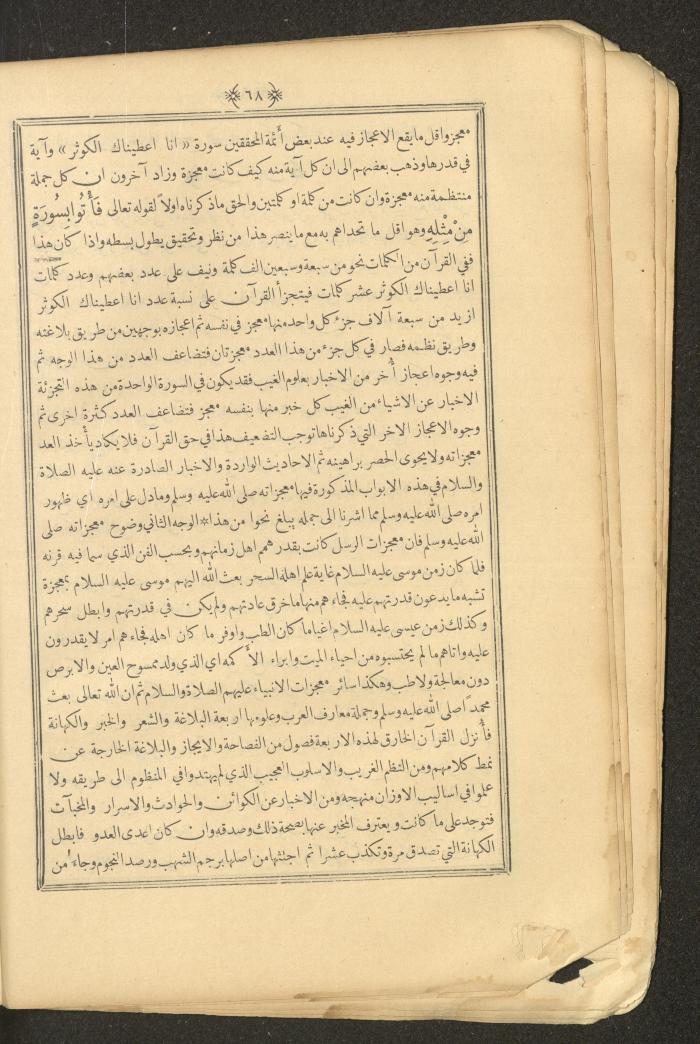 ﴿٦٨﴾
معجز واقل ما يقع الاعجاز فيه عند بعض أئمة المحققين سورة « انا اعطيناك الكوثر » وآية
في قدرها وذهب بعضهم الى ان كل آية منه كيف كانت معجزة وزاد آخرون ان كل جملة
منتظمة منه معجزة وان كانت من كلمة او كلمتين والحق ما ذكرناه اولاً لقوله تعالى فَأْتُوا بِسُورَةٍ
مِنْ مِثْلِهِ وهو اقل ما تحداهم به مع ما ينصر هذا من نظر وتحقيق يطول بسطه واذا كان هذا
ففي القرآن من الكلمات نحو من سبعة وسبعين الف كلمة ونيف على عدد بعضهم وعدد كلمات
انا اعطيناك الكوثر عشر كلمات فيتجزأ القرآن على نسبة عدد انا اعطيناك الكوثر
ازيد من سبعة آلاف جزء كل واحد منها معجز في نفسه ثم اعجازه بوجهين من طريق بلاغته
وطريق نظمه فصار في كل جزء من هذا العدد معجزتان فتضاعف العدد من هذا الوجه ثم
فيه وجوه اعجاز أُخر من الاخبار بعلوم الغيب فقد يكون في السورة الواحدة من هذه التجزئة
الاخبار عن الاشياء من الغيب كل خبر منها بنفسه معجز فتضاعف العدد كثرة اخرى ثم
وجوه الاعجاز الاخر التي ذكرناها توجب التضعيف هذا في حق القرآن فلا يكاد يأخذ العد
معجزاته ولا يحوى الحصر براهينه ثم الاحاديث الواردة والاخبار الصادرة عنه عليه الصلاة
والسلام في هذه الابواب المذكورة فيها معجزاته صلى الله عليه وسلم وما دل على امره اي ظهور
امره صلى الله عليه وسلم مما اشرنا الى جمله يبلغ نحوا من هذا * الوجه الثاني وضوح معجزاته صلى
الله عليه وسلم فان معجزات الرسل كانت بقدر همم اهل زمانهم وبحسب الفن الذي سما فيه قرنه
فلما كان زمن موسى عليه السلام غاية علم اهله السحر بعث الله اليهم موسى عليه السلام بمعجزة
تشبه ما يدعون قدرتهم عليه فجاءهم منها ما خرق عادتهم ولم يكن في قدرتهم وابطل سحرهم
وكذلك زمن عيسى عليه السلام اغيا ما كان الطب واوفر ما كان اهله فجاءهم امر لا يقدرون
عليه واتاهم ما لم يحتسبوه من احياء الميت وابراء الأكمه اي الذي ولد ممسوح العين والابرص
دون معالجة ولا طب وهكذا سائر معجزات الانبياء عليهم الصلاة والسلام ثم ان الله تعالى بعث
محمداً صلى الله عليه وسلم وجملة معارف العرب وعلومها اربعة البلاغة والشعر والخبر والكهانة
فأنزل القرآن الخارق لهذه الاربعة فصول من الفصاحة والايجاز والبلاغة الخارجة عن
نمط كلامهم ومن النظم الغريب والاسلوب العجيب الذي لم يهتدوا في المنظوم الى طريقه ولا
علموا في اساليب الاوزان منهجه ومن الاخبار عن الكوائن والحوادث والاسرار والمخبآت
فتوجد على ما كانت ويعترف المخبر عنها بصحة ذلك وصدقه وان كان اعدى العدو فابطل
الكهانة التي تصدق مرة وتكذب عشرا ثم اجتثها من اصلها برجم الشهب ورصد النجوم وجاء من